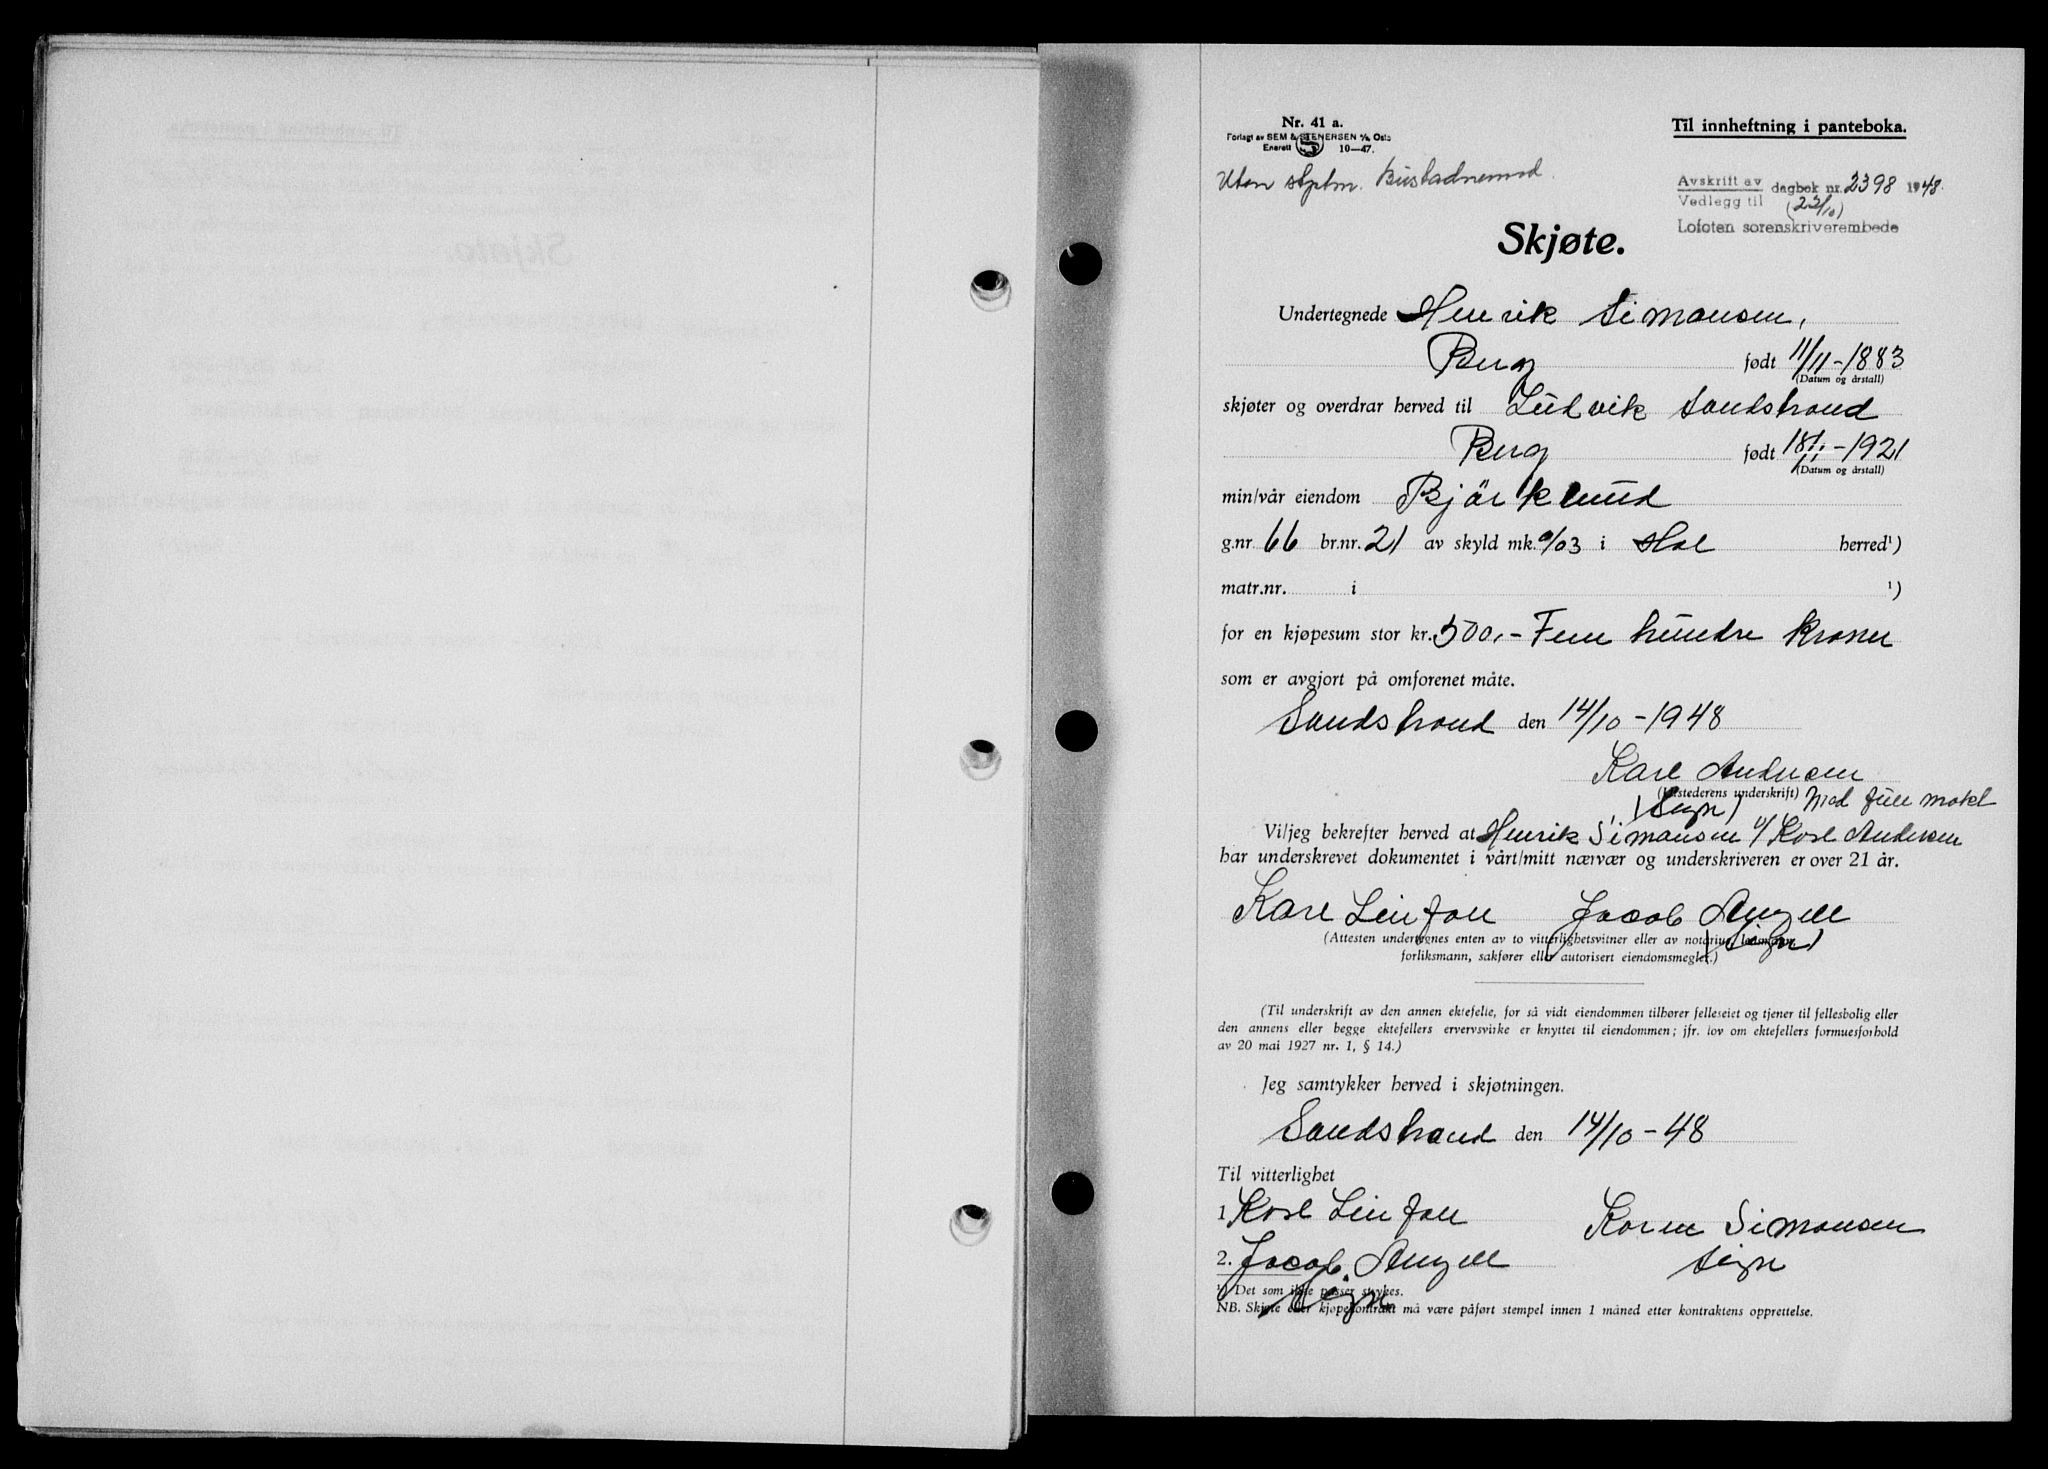 Nr. 41 a.
Forlagt av SEM & STENERSEN A/S Oslo
Enerett 10—47.
Til innheftning i panteboka.
Uten stplm. Bustadnemnd.
Avskrift av
Vedlegg til
dagbok nr. 2398 1948.
(23/10)
Lofoten sorenskriverembede
Skjøte.
Undertegnede Henrik Simonsen,
Berg født 11/11-1883
(Datum og årstall)
skjøter og overdrar herved til Ludvik Sandstrand
Berg født 18/1-1921
(Datum og årstall)
min/vår eiendom Bjørklund
g.nr. 66 br.nr. 21 av skyld mk. 0/03 i Hol herred¹)
matr.nr. i ¹)
for en kjøpesum stor kr. 500,- Fem hundre kroner
som er avgjort på omforenet måte.
Sandstrand den 14/10-1948
Karl Andersen
(Utstederens underskrift) Med full makt
(Sign)
Vi/jeg bekrefter herved at Henrik Simonsen v/ Karl Andersen
har underskrevet dokumentet i vårt/mitt nærvær og underskriveren er over 21 år.
Karl Jacob Angell
(Attesten undertegnes enten av to vitterlighetsvitner eller av notarius, lensmann,
(Sign)
forliksmann, sakfører eller autorisert eiendomsmegler.)
(Til underskrift av den annen ektefelle, for så vidt eiendommen tilhører felleseiet og tjener til fellesbolig eller
den annens eller begge ektefellers ervervsvirke er knyttet til eiendommen; jfr. lov om ektefellers formuesforhold
av 20 mai 1927 nr. 1, § 14.)
Jeg samtykker herved i skjøtningen.
Sandstrand den 14/10-48
Til vitterlighet
1 Karl Karen Simonsen
2. Jacob Angell Sign
Sign
¹) Det som ikke passer strykes.
NB. Skjøte eller kjøpekontrakt må være påført stempel innen 1 måned etter kontraktens opprettelse.